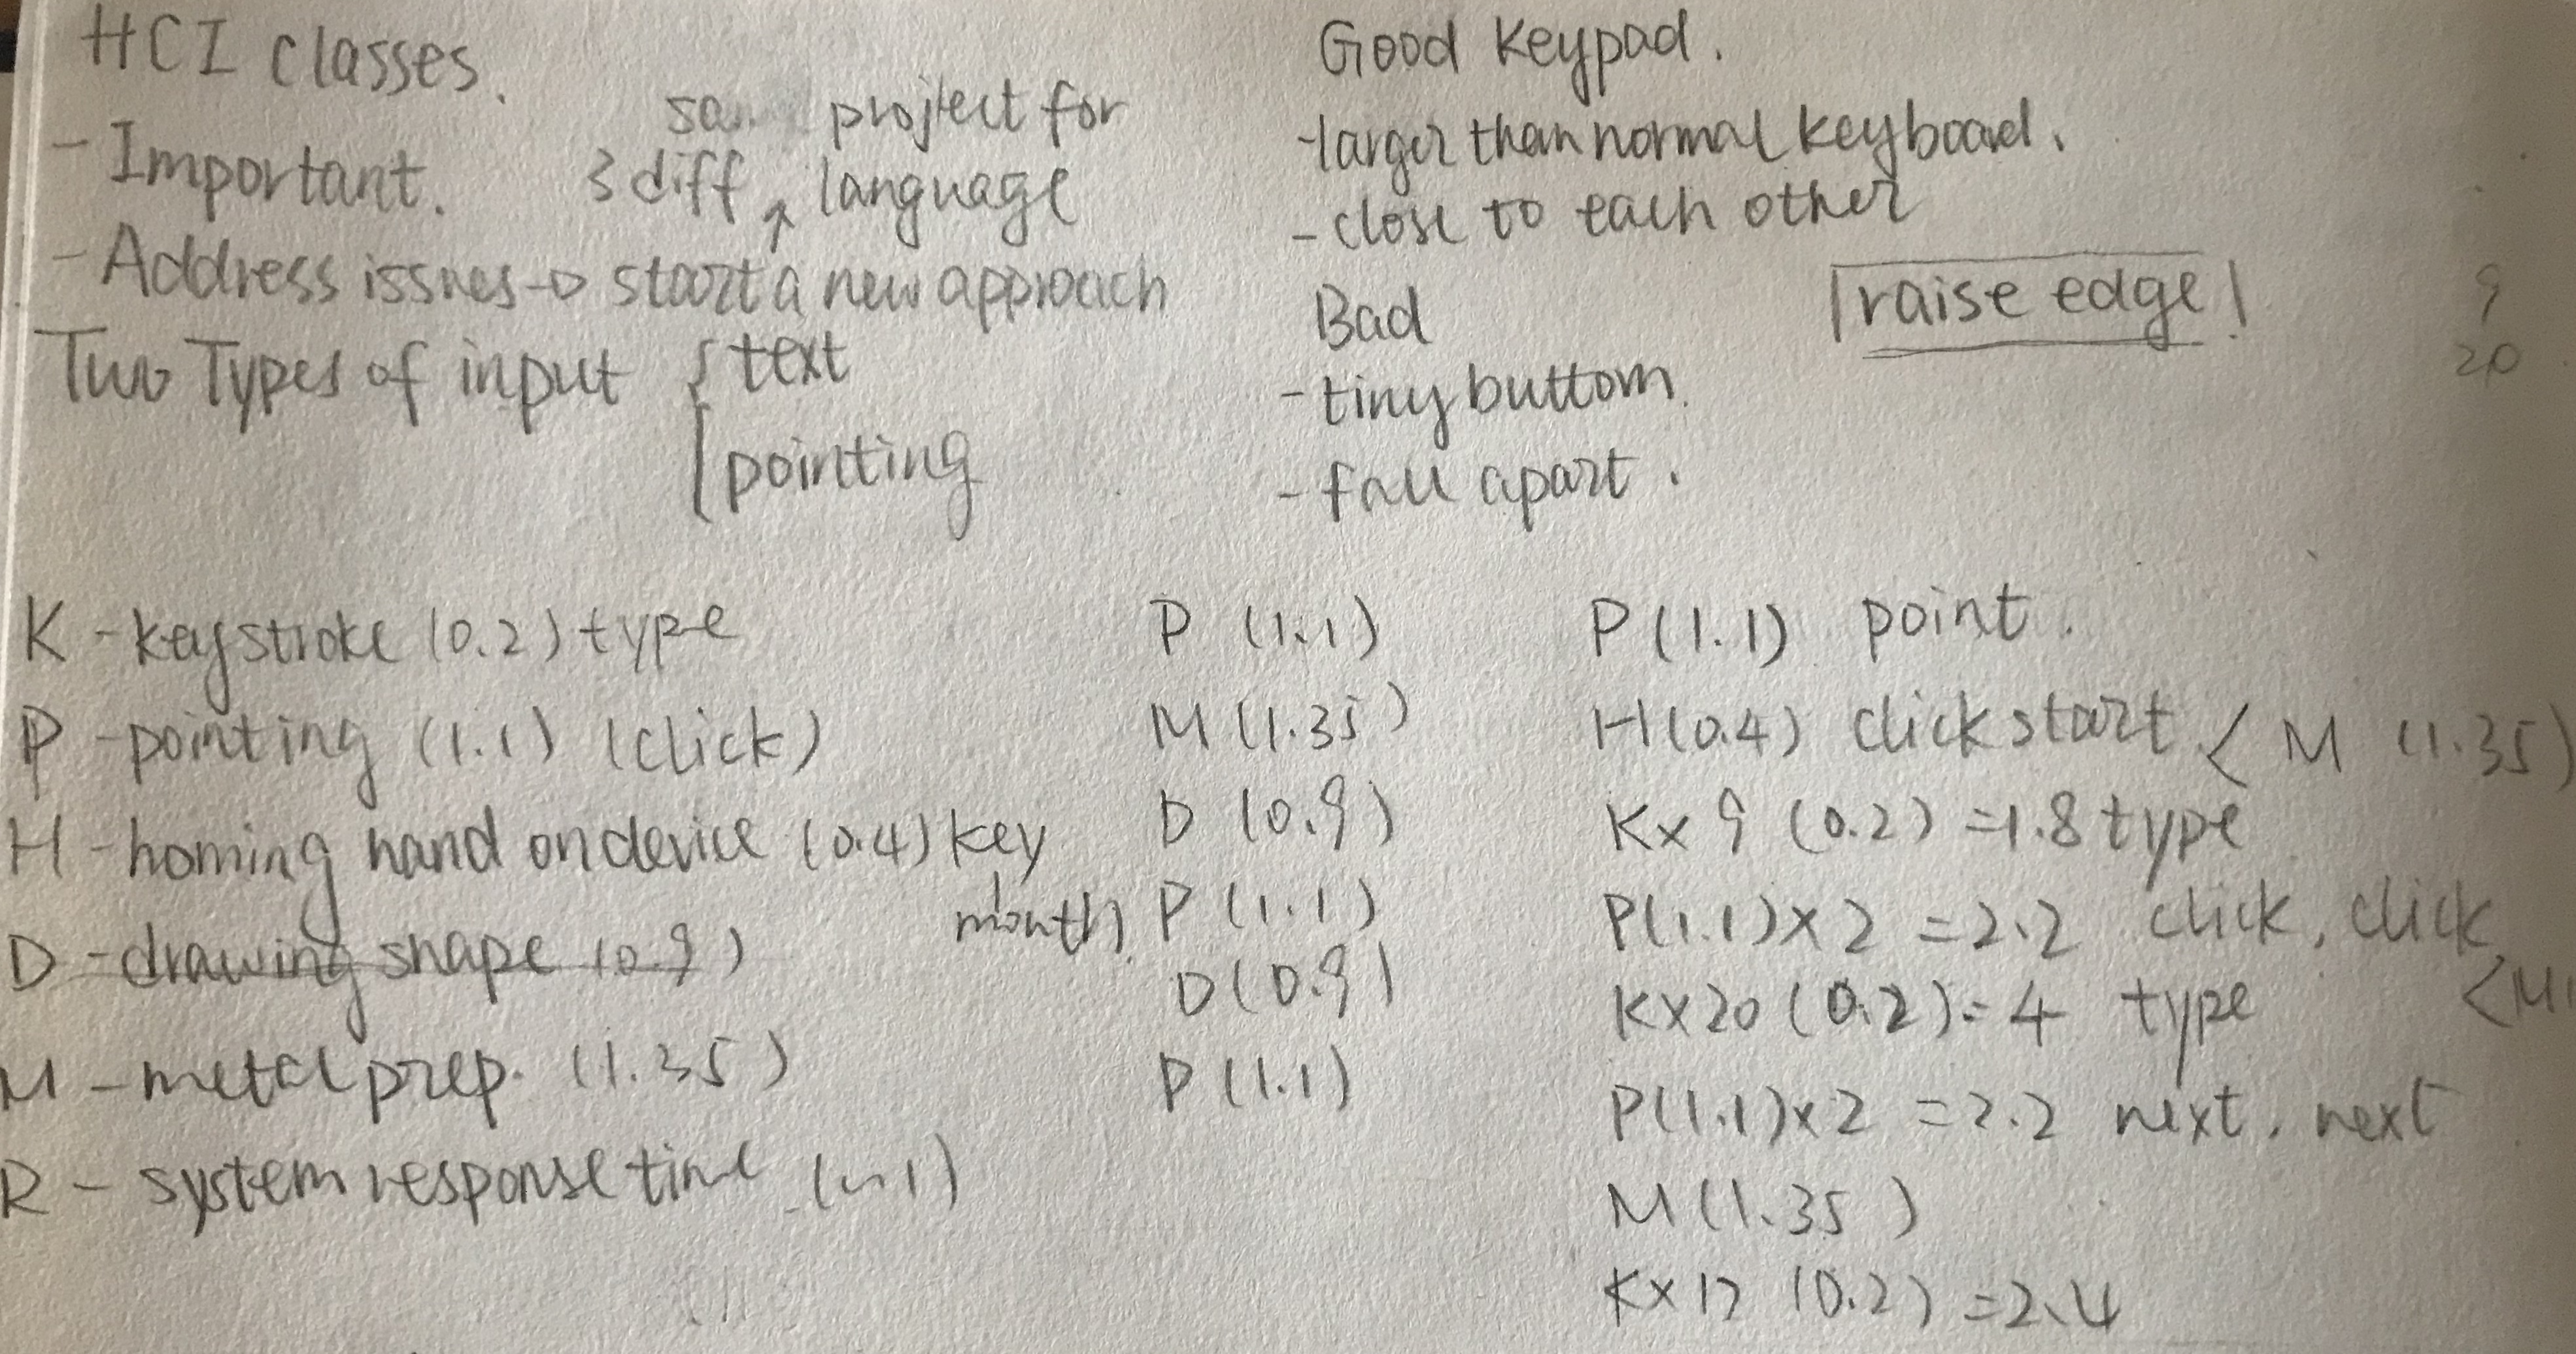 HCI classes.
- Important.
project for
3 diff ↑ language
- Address issues → start a new approach
Two Types of input { text
pointing
Good Keypad.
- larger than normal keyboard.
- close to each other
raise edge
Bad
- tiny buttom.
- fall apart.
9
20
K - keystroke (0.2) type
P - pointing (1.1) (click)
H - homing hand on device (0.4) key
D - drawing shape (0.9)
M - metal prep. (1.35)
R - system response time
P (1.1)
M (1.35)
D (0.9)
month. P (1.1)
D (0.9)
P (1.1)
P (1.1) point.
H (0.4) click start. < M (1.35)
K x 9 (0.2) = 1.8 type
P (1.1) x 2 = 2.2 click, click
K x 20 (0.2) = 4 type < M
P (1.1) x 2 = 2.2 next, next
M (1.35)
K x 12 (0.2) = 2.4